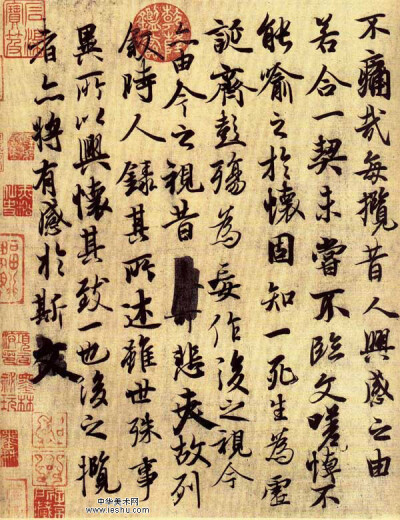 不痛哉每攬昔人興感之由
若合一契未嘗不臨文嗟悼不
能喻之於懷固知一死生為虛
誕齊彭殤為妄作後之視今
亦由今之視昔悲夫故列
叙時人錄其所述雖世殊事
異所以興懷其致一也後之攬
者亦將有感於斯文
中华美术网
www.ieshu.com